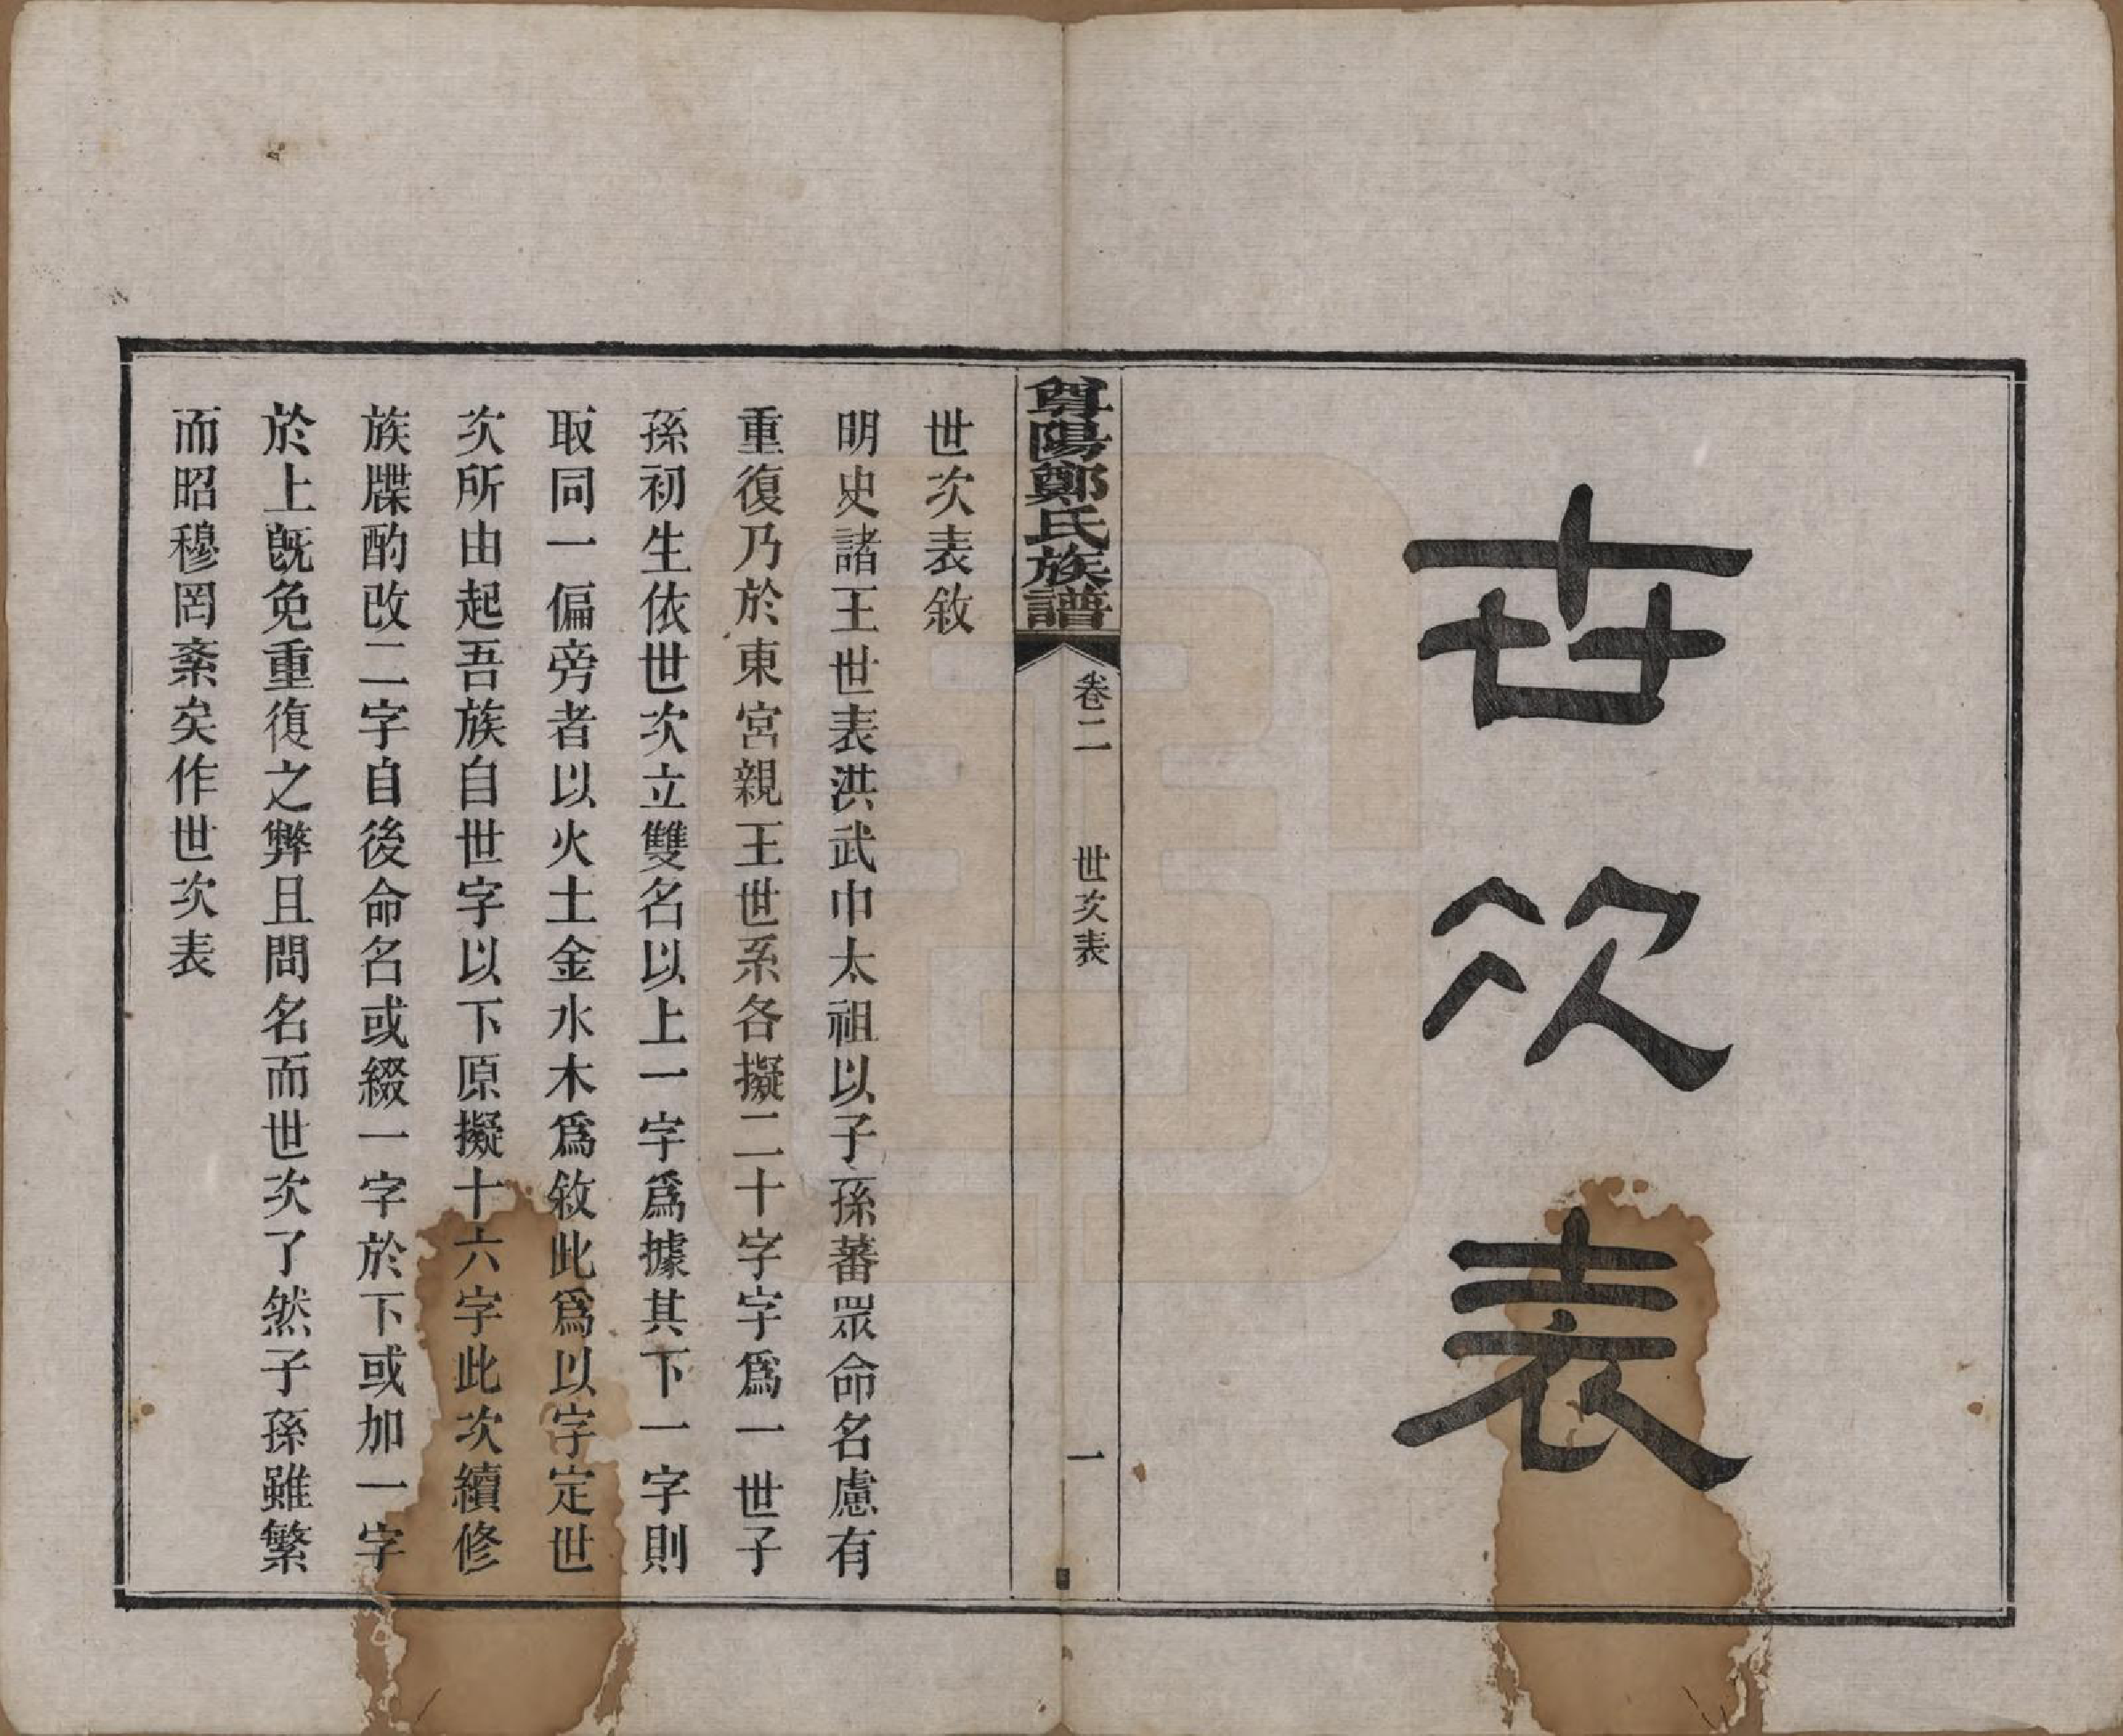 世次表
尊陽鄭氏族譜
卷二
世次表
一
世次表敘
明史諸王世表洪武中太祖以子孫蕃眾命名慮有
重復乃於東宮親王世系各擬二十字字爲一世子
孫初生依世次立雙名以上一字爲據其下一字則
取同一偏旁者以火土金水木爲敘此爲以字定世
次所由起吾族自世字以下原擬十六字此次續修
族牒酌改二字自後命名或綴一字於下或加一字
於上既免重復之弊且問名而世次了然子孫雖繁
而昭穆罔紊矣作世次表